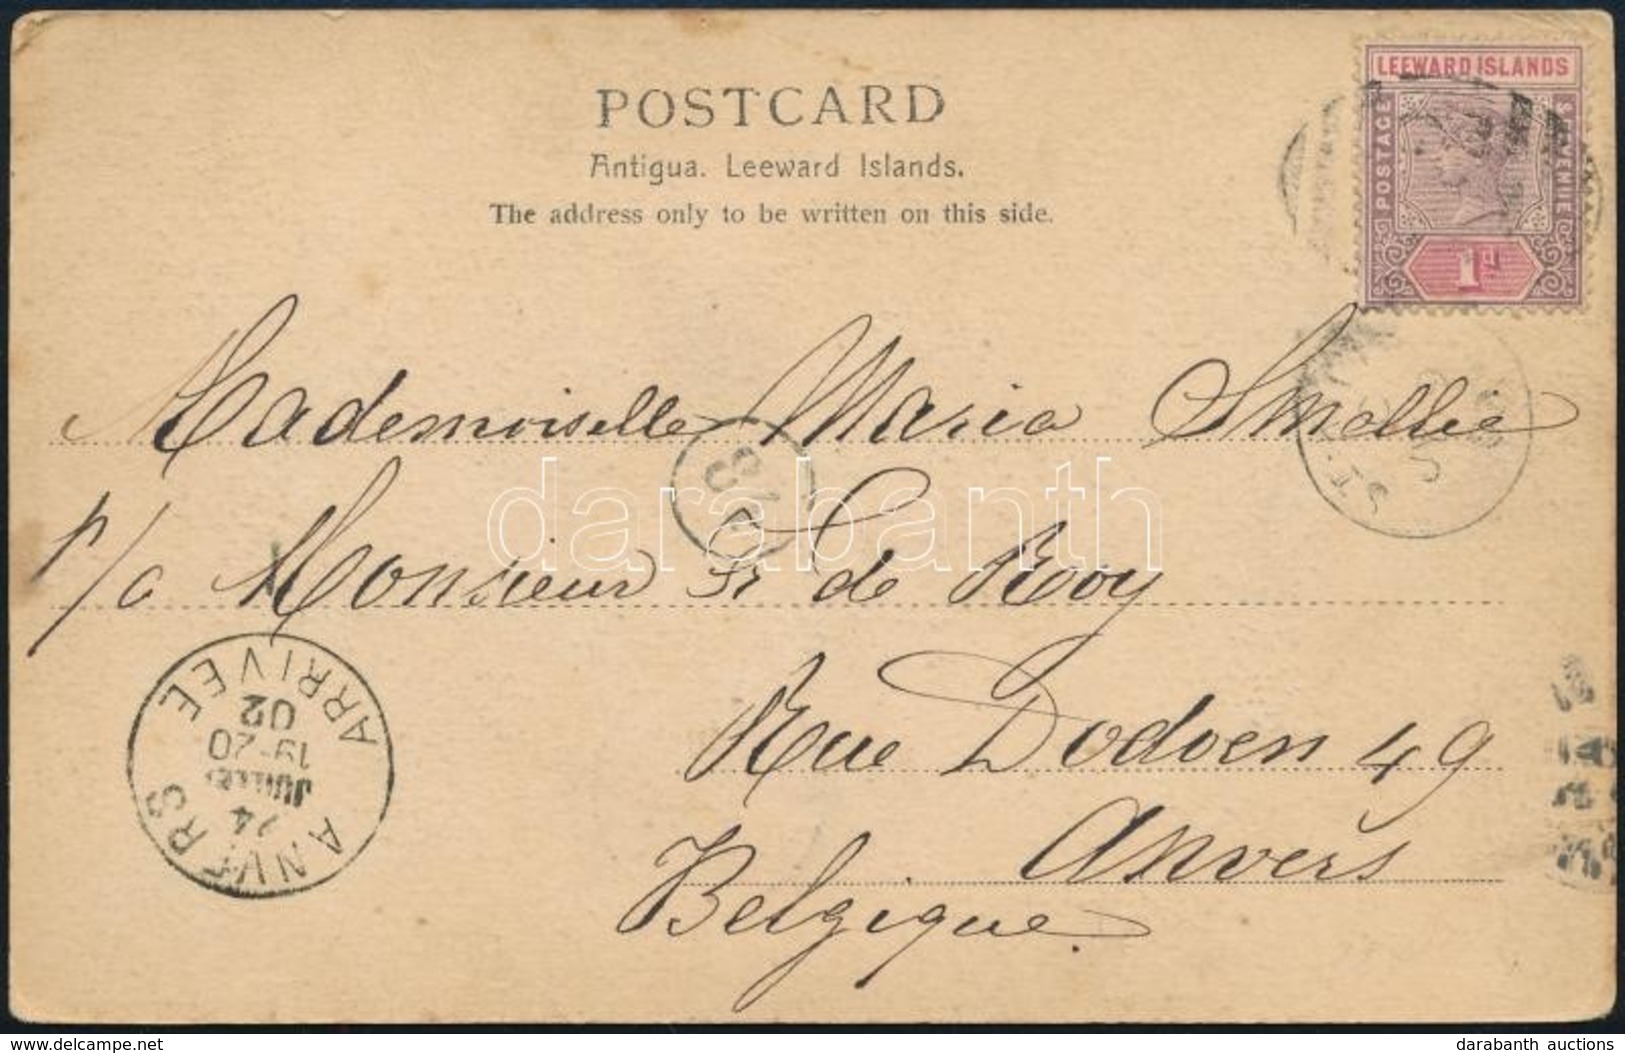 POSTCARD
Antigua. Leeward Islands.
The address only to be written on this side.
LEEWARD ISLANDS
POSTAGE
1d
Mademoiselle Maria Smellie
p/a Monsieur Fr de Rooy
Rue Dodoen 49
Anvers
Belgique.
ANVERS
24
JUIL
19-20
02
ARRIVEE
darabanth
www.delcampe.net
darabanth auctions